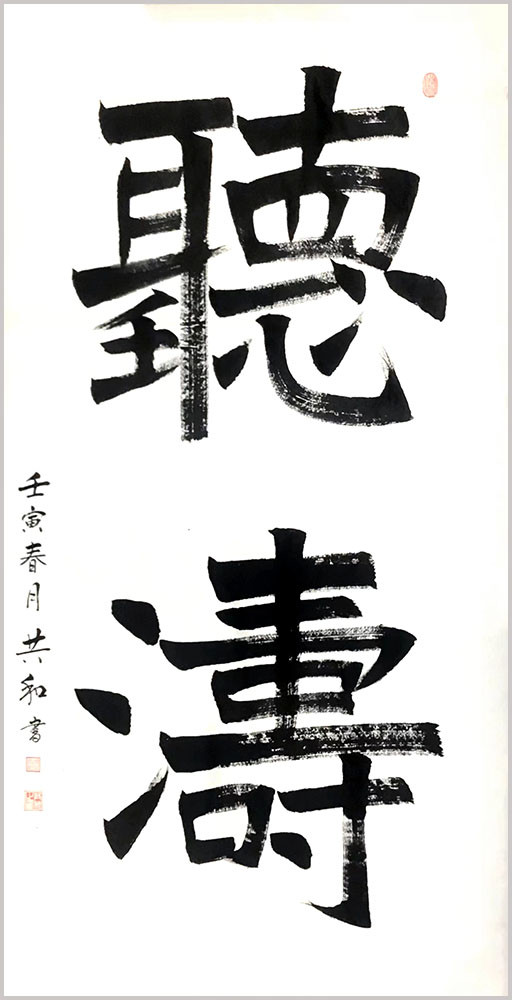 聽濤
壬寅春月共和書